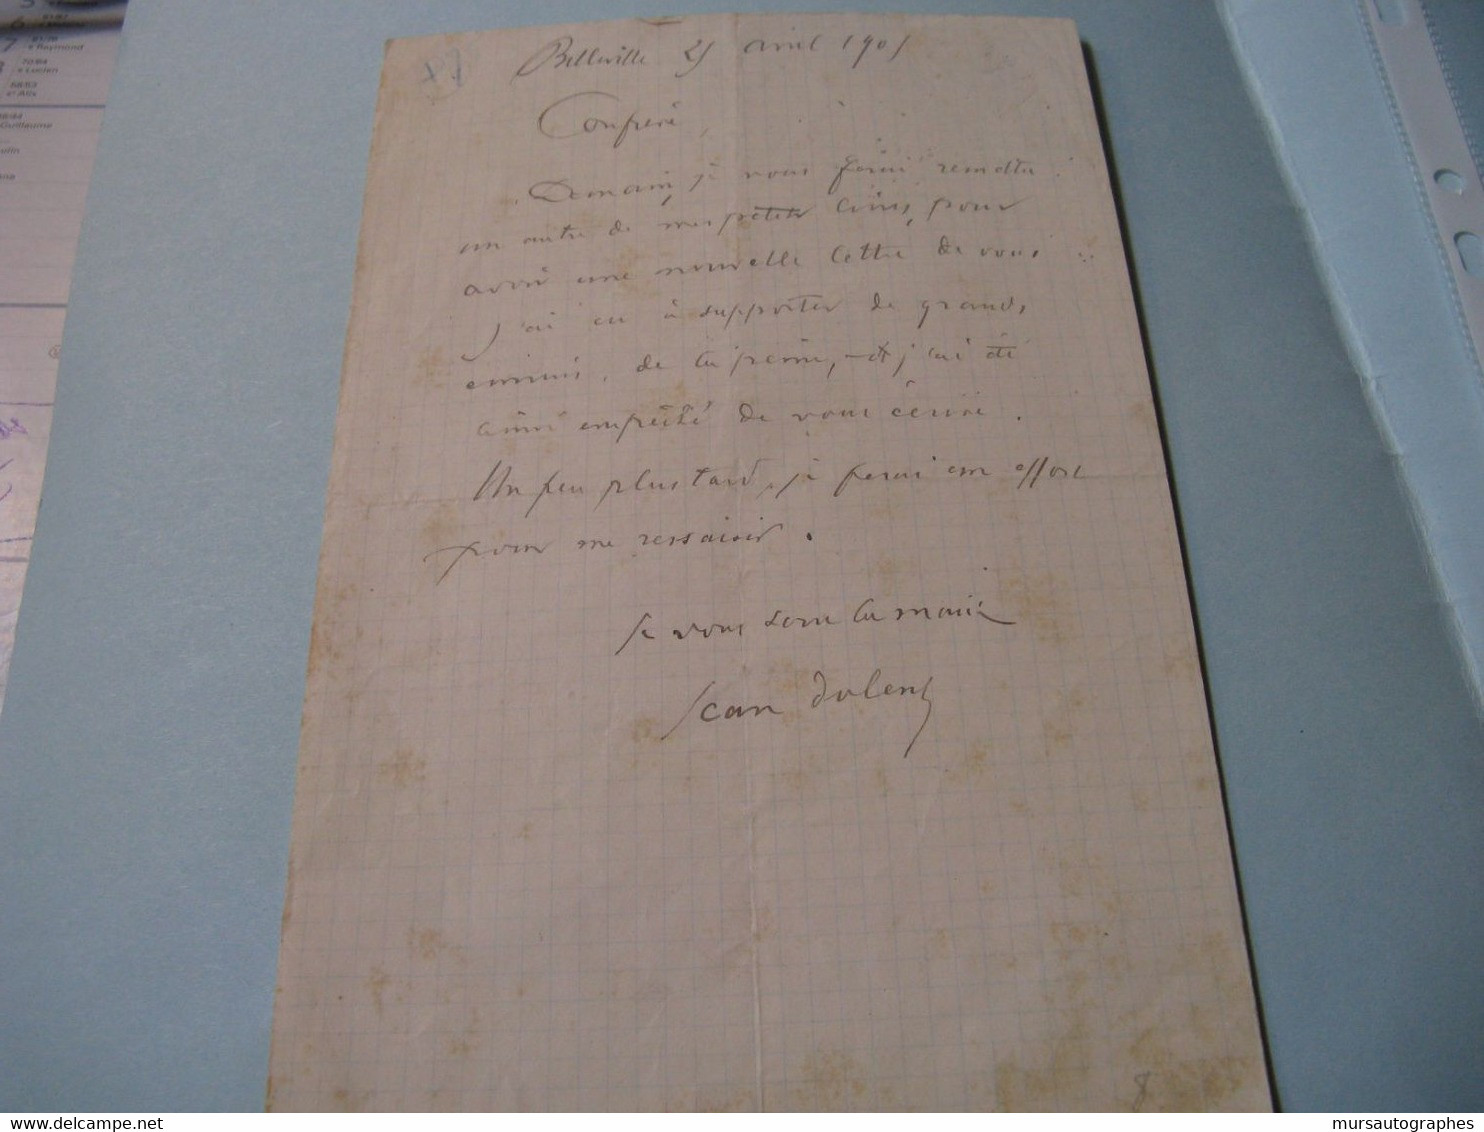 Belleville 25 avril 1905
Confrère,
Demain, je vous ferai remettre
un autre de mes petits livres, pour
avoir une nouvelle lettre de vous..
J'ai eu à supporter de grands
ennuis, de la peine, et j'ai été
ainsi empêché de vous écrire.
Un peu plus tard, je ferai un effort
pour me ressaisir.
Je vous serre la main
Jean Dolent
8
6
7
Raymond
70/64
Lucien
68/53
Alix
Guillaume
delcampe.net
mursautographes